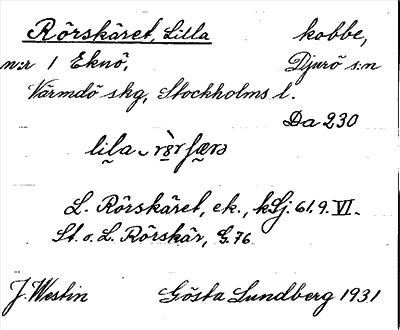 Rörskäret, Lilla kobbe,
n:r 1 Eknö, Djurö s:n
Värmdö skg, Stockholms l.
Da 230
L. Rörskäret, ek., kSj. 61.9. VI.
St. o. L. Rörskär, G. 76
J. Westin Gösta Lundberg 1931